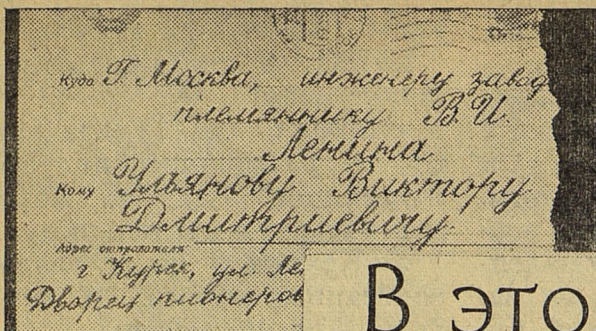 Куда Г. Москва, инженеру завод
племяннику В. И.
Ленина
Кому Ульянову Виктору
Дмитриевичу.
Адрес отправителя
г Курск, ул. Лен
Дворец пионеров
В ЭТО